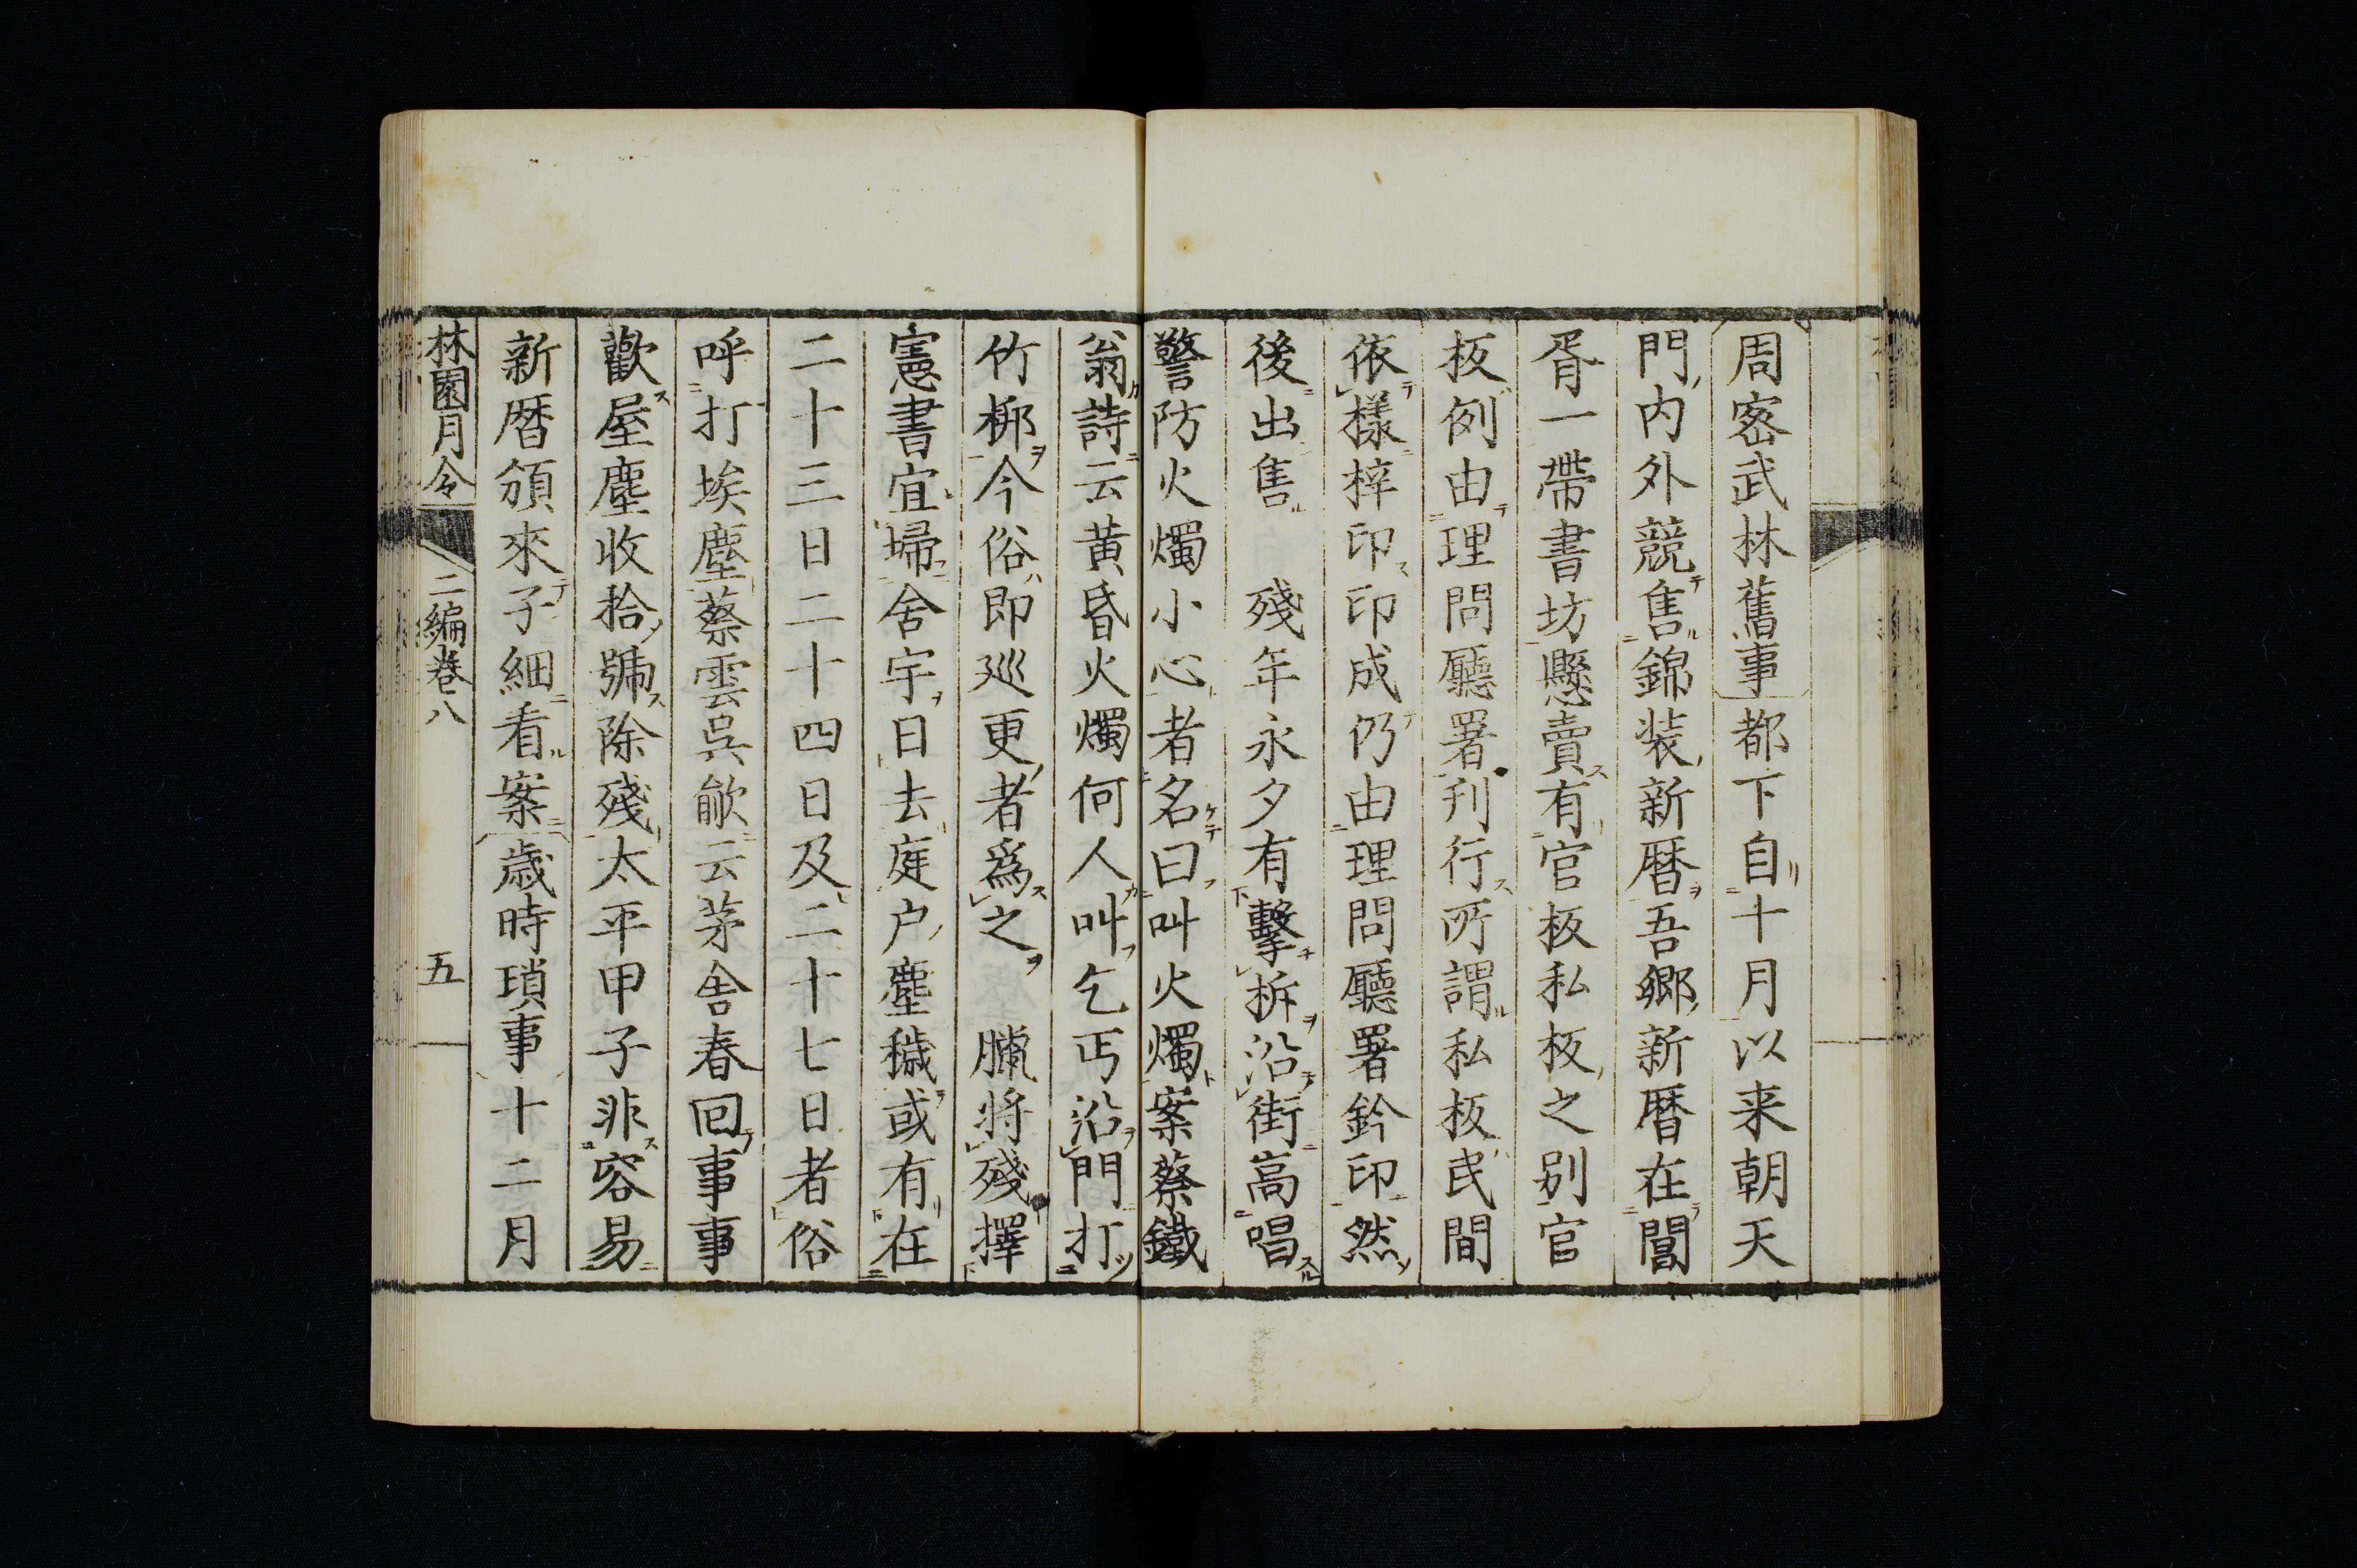 周密武林舊事都下自十月以来朝天
門内外競售錦装新暦吾郷新暦在閶
胥一帶書坊懸賣有官板私板之别官
板例由理問廳署刋行所謂私板民間
依樣梓印印成仍由理問廳署鈐印然
後出售　殘年永夕有擊柝沿街高唱
警防火燭小心者名曰叫火燭案蔡鐵
翁詩云黄昏火燭何人叫乞丐沿門打
竹梆今俗即巡更者爲之　臘将殘擇
憲書宜掃舍宇日去庭户塵穢或有在
二十三日二十四日及二十七日者俗
呼打埃塵蔡雲呉歈云茅舍春回事事
歡屋塵收拾號除殘太平甲子非容易
新暦頒來子細看案歳時瑣事十二月
林園月令　二編卷八　五